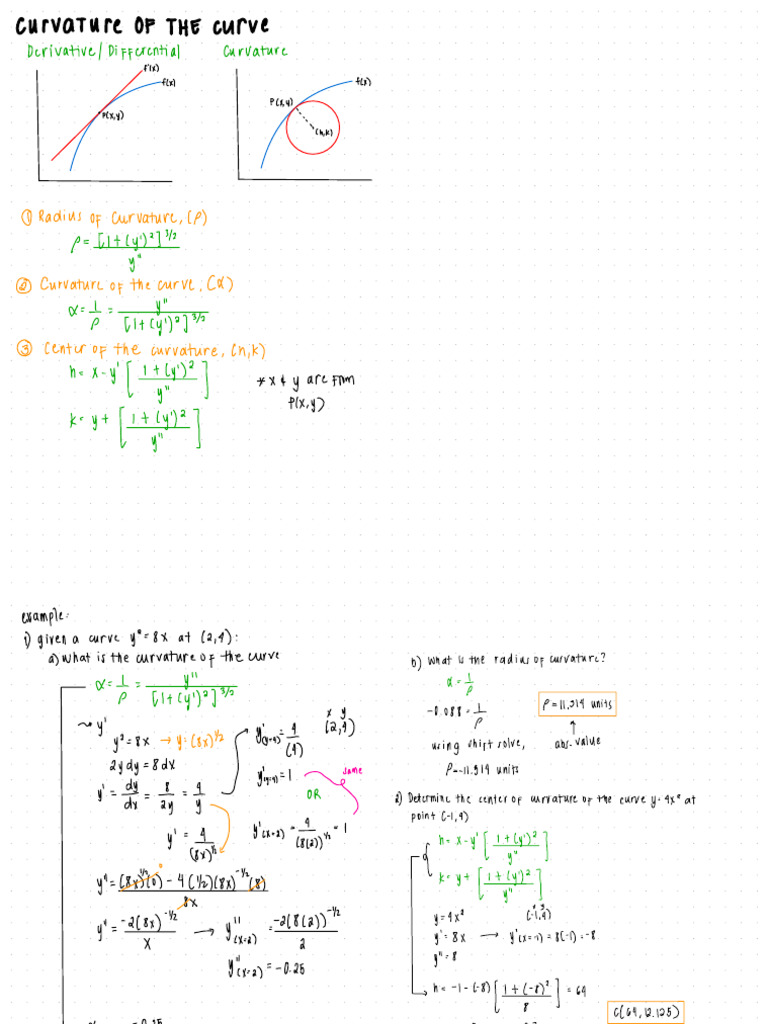 Curvature OF THE Curve
Derivative/Differential
Curvature
f'(x)
f(x)
P(x,y)
f(x)
P(x,y)
(h,k)
① Radius of Curvature, (ρ)
ρ = [1+(y')²]^3/2 / y"
② Curvature of the curve, (α)
α = 1/ρ = y" / [1+(y')²]^3/2
③ Center of the curvature, (h,k)
h = x-y' [ 1+(y')² / y" ]
k = y + [ 1+(y')² / y" ]
* x & y are from
P(x,y)
example:
1) given a curve y² = 8x at (2,4):
a) What is the curvature of the curve
α = 1/ρ = y" / [1+(y')²]^3/2
y'
y² = 8x → y = (8x)^1/2
2y dy = 8 dx
y' = dy/dx = 8/2y = 4/y
y' = 4/(8x)^1/2
x y
(2,4)
y'(y=4) = 4/(4)
y'(y=4) = 1
same
OR
y'(x=2) = 4/(8(2))^1/2 = 1
y" = (8x)^1/2 (0) - 4(1/2)(8x)^-1/2 (8) / 8x
0
y" = -2(8x)^-1/2 / x → y"(x=2) = -2(8(2))^-1/2 / 2
y"(x=2) = -0.25
-0.25
b) What is the radius of curvature?
α = 1/ρ
-0.088 = 1/ρ
ρ = 11.314 units
using shift solve,
abs-value
ρ = -11.314 units
2) Determine the center of curvature of the curve y = 4x² at
point (-1,4)
h = x-y' [ 1+(y')² / y" ]
k = y + [ 1+(y')² / y" ]
y = 4x²
x y
(-1,4)
y' = 8x → y'(x=-1) = 8(-1) = -8
y" = 8
h = -1-(-8) [ 1+(-8)² / 8 ] = 64
C(64, 12.125)